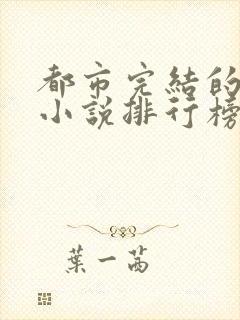 都市完結的
小說排行榜
葉一茜